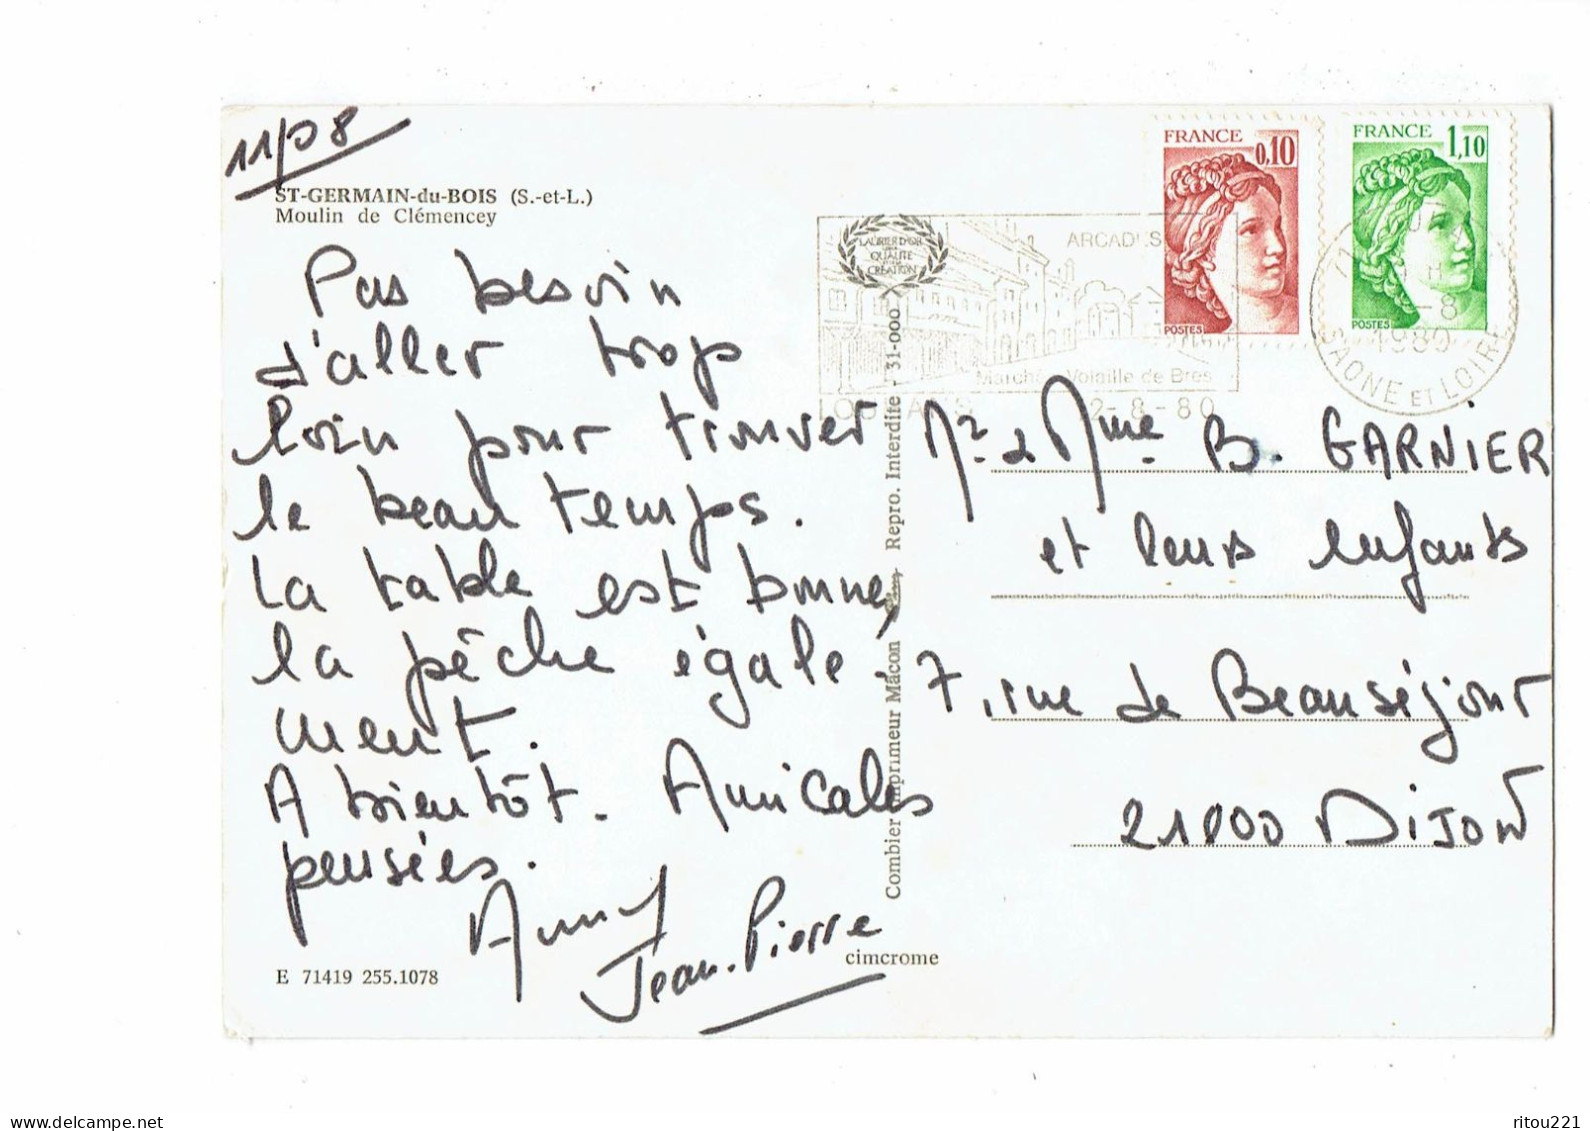 11/08
ST-GERMAIN-du-BOIS (S.-et-L.)
Moulin de Clémencey
Pas besoin
d'aller trop
loin pour trouver
le beau temps.
La table est bonne,
la pêche égale-
ment.
A bientôt. Amicales
pensées.
Anny
Jean-Pierre
E 71419 255.1078
cimcrome
Combier Imprimeur Mâcon
Repro. Interdite - 31-000
LAURIER D'OR
QUALITE
CREATION
ARCADES
Marché Volaille de Bres
12-8-80
FRANCE 0,10
POSTES
FRANCE 1,10
POSTES
-8
1980
SAONE ET LOIRE
Mr & Mme B. GARNIER
et leurs enfants
7, rue de Beauséjour
21000 DIJON
delcampe.net
ritou221